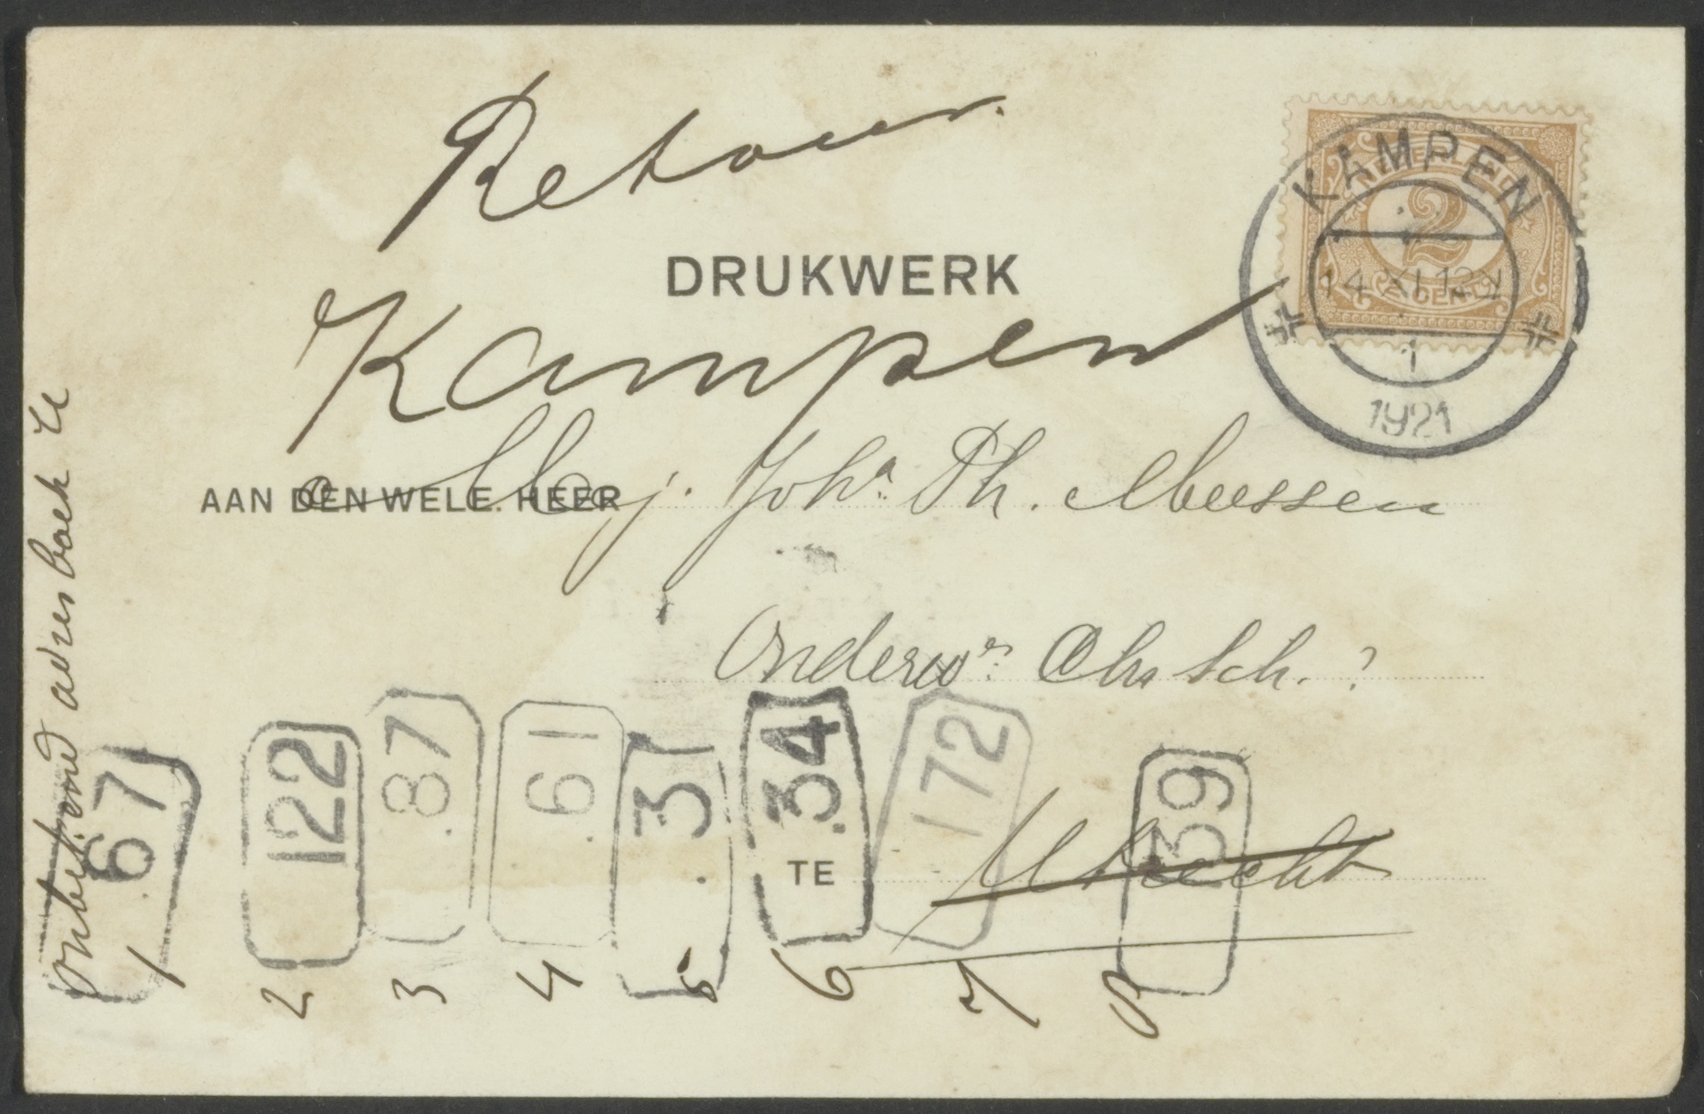 Retour.
DRUKWERK
Kampen
KAMPEN
NEDERLAND
2
CENT
14 XI 12 V
1
1921
AAN DEN WELE. HEER Mej. Joha. Th. Meessen
Onderw.s Chr Sch. ?
TE Utrecht
.67
122
.87
.61
.3
.34
172
39
1
2
3
4
5
6
7
8
Onbekend adresboek U